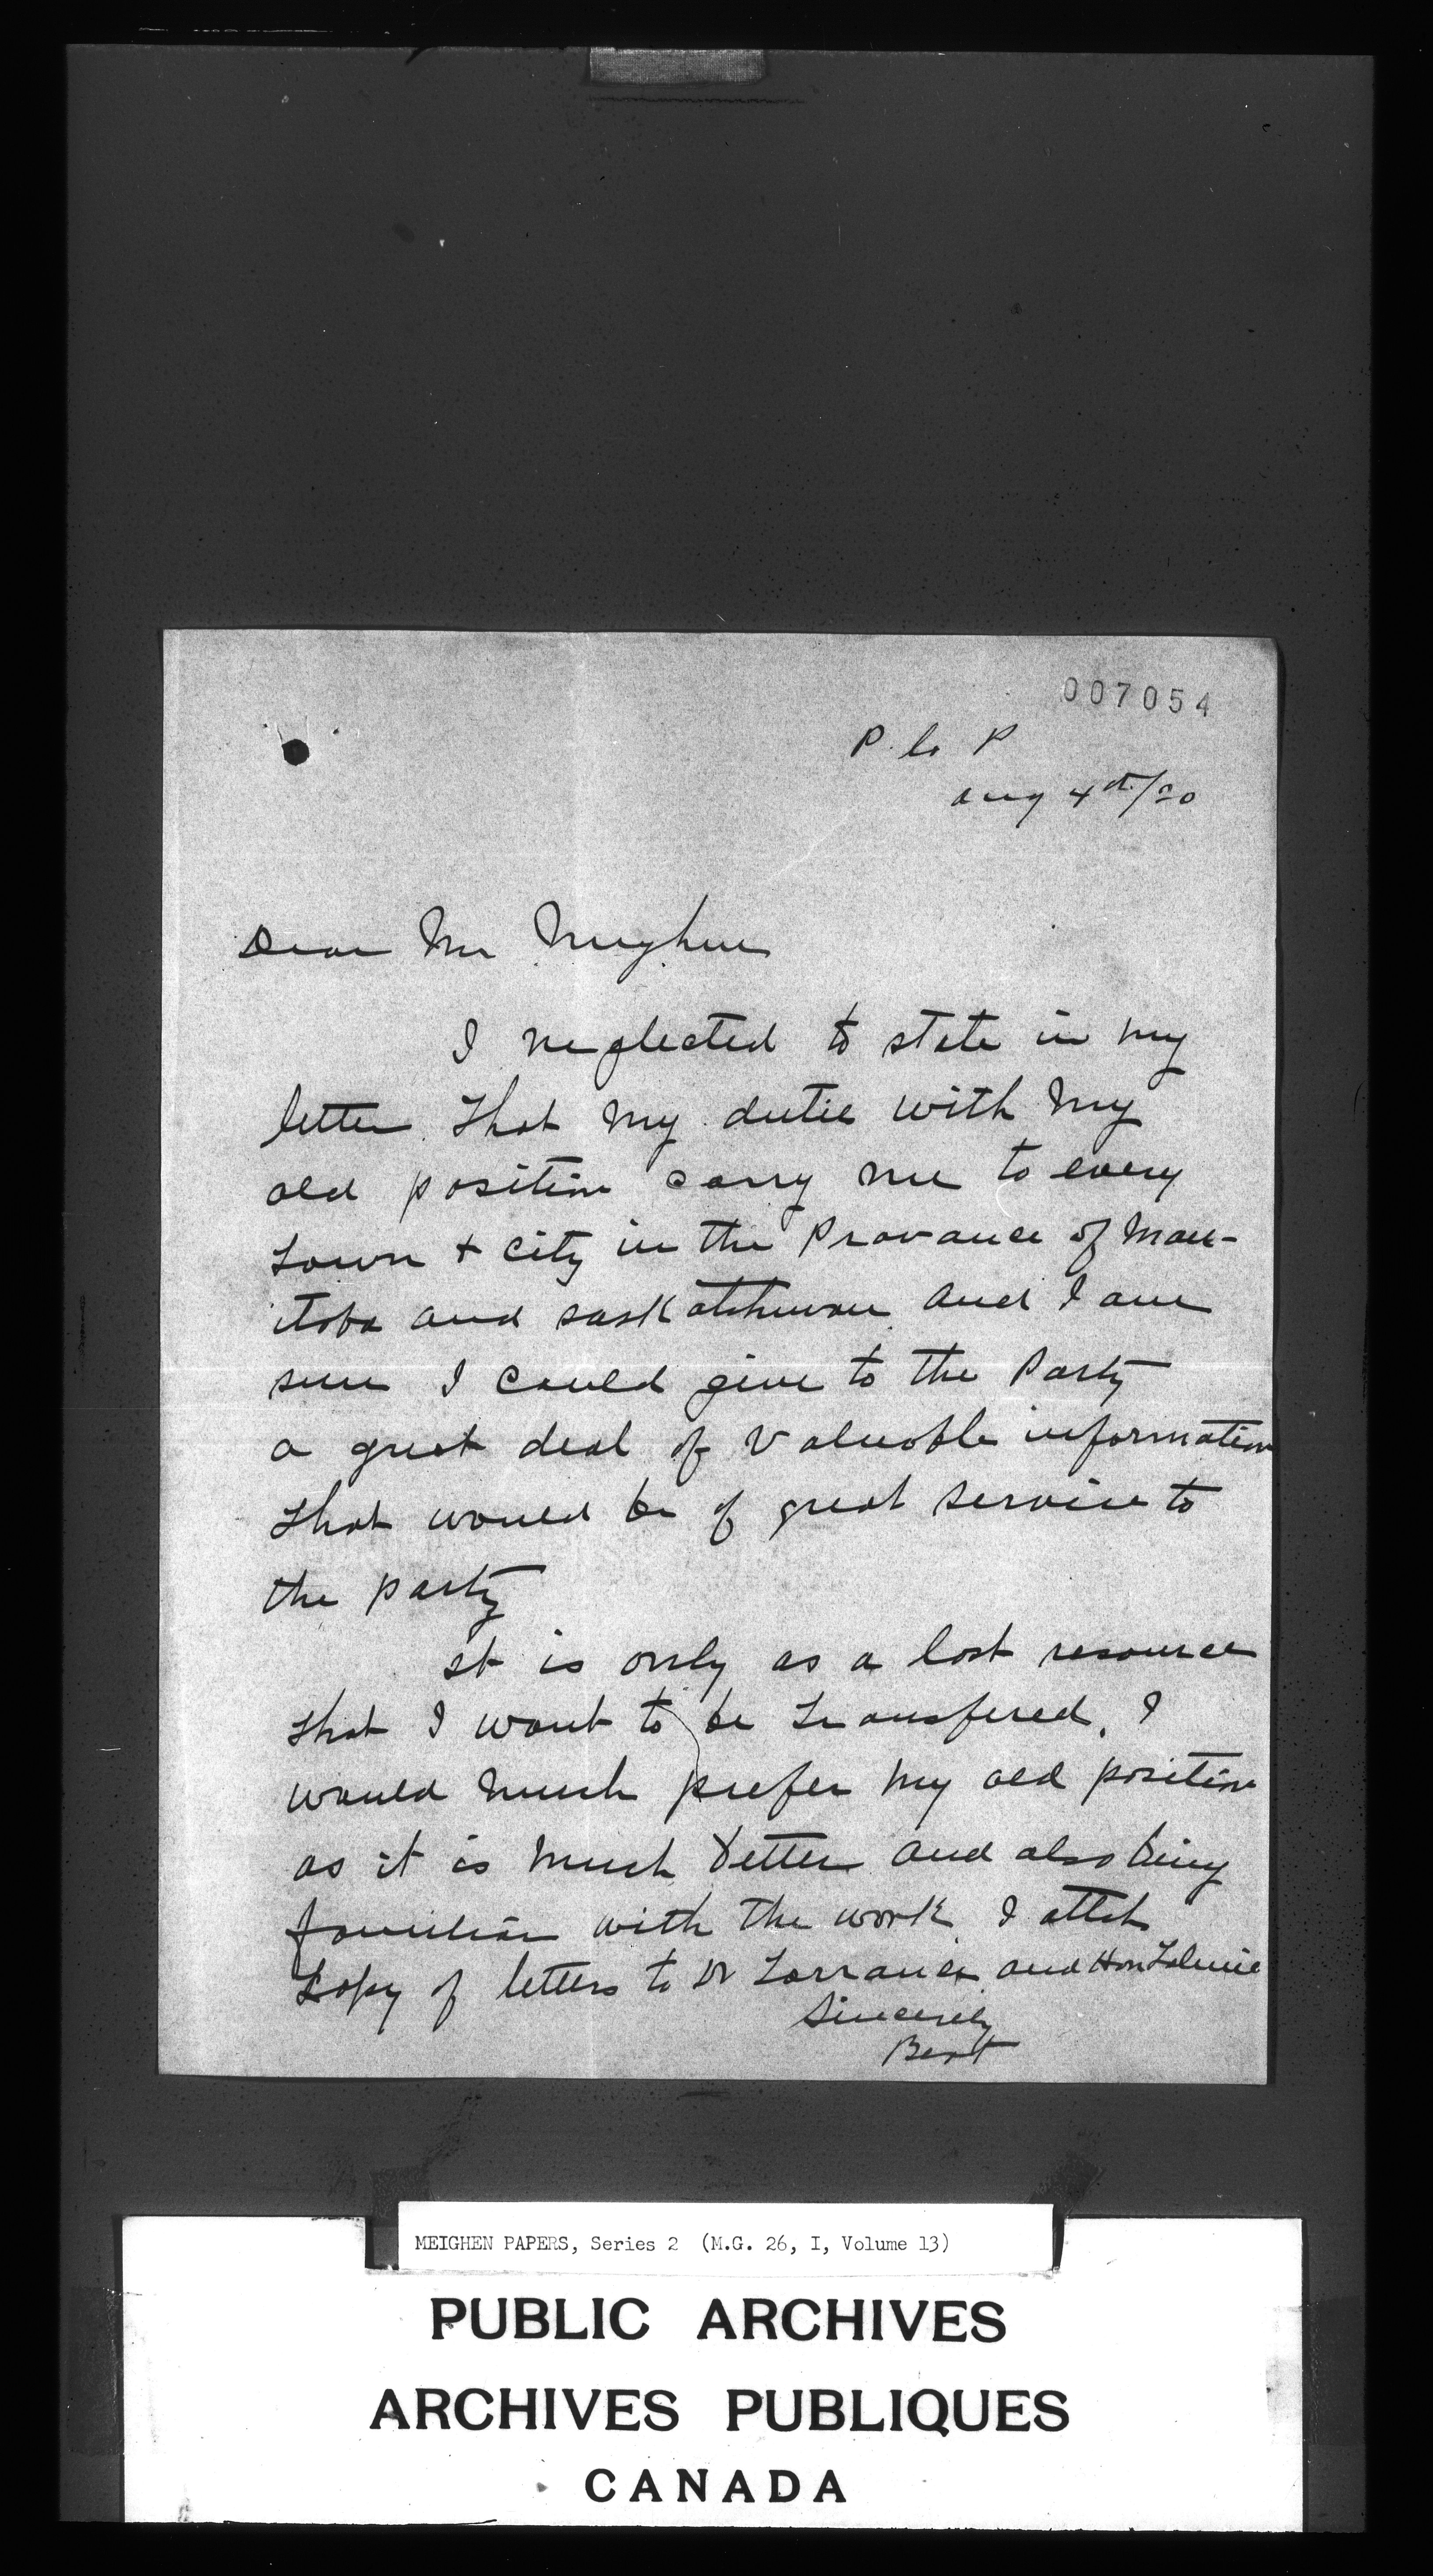 007054
P. la P
Aug 4th/20
Dear Mr Meighen
I neglected to state in my
letter that my dutie with my
old position carry me to every
town + city in the Provance of Man-
itoba and Saskatchewan and I am
sure I could give to the Party
a great deal of valuable information
that would be of great service to
the party
It is only as a last resource
that I want to be transfered. I
would much prefer my old position
as it is much better and also being
familiar with the work I attch
copy of letters to Dr Torrance and Hon Tolmie
Sincerely
Bert
MEIGHEN PAPERS, Series 2 (M.G. 26, I, Volume 13)
PUBLIC ARCHIVES
ARCHIVES PUBLIQUES
CANADA